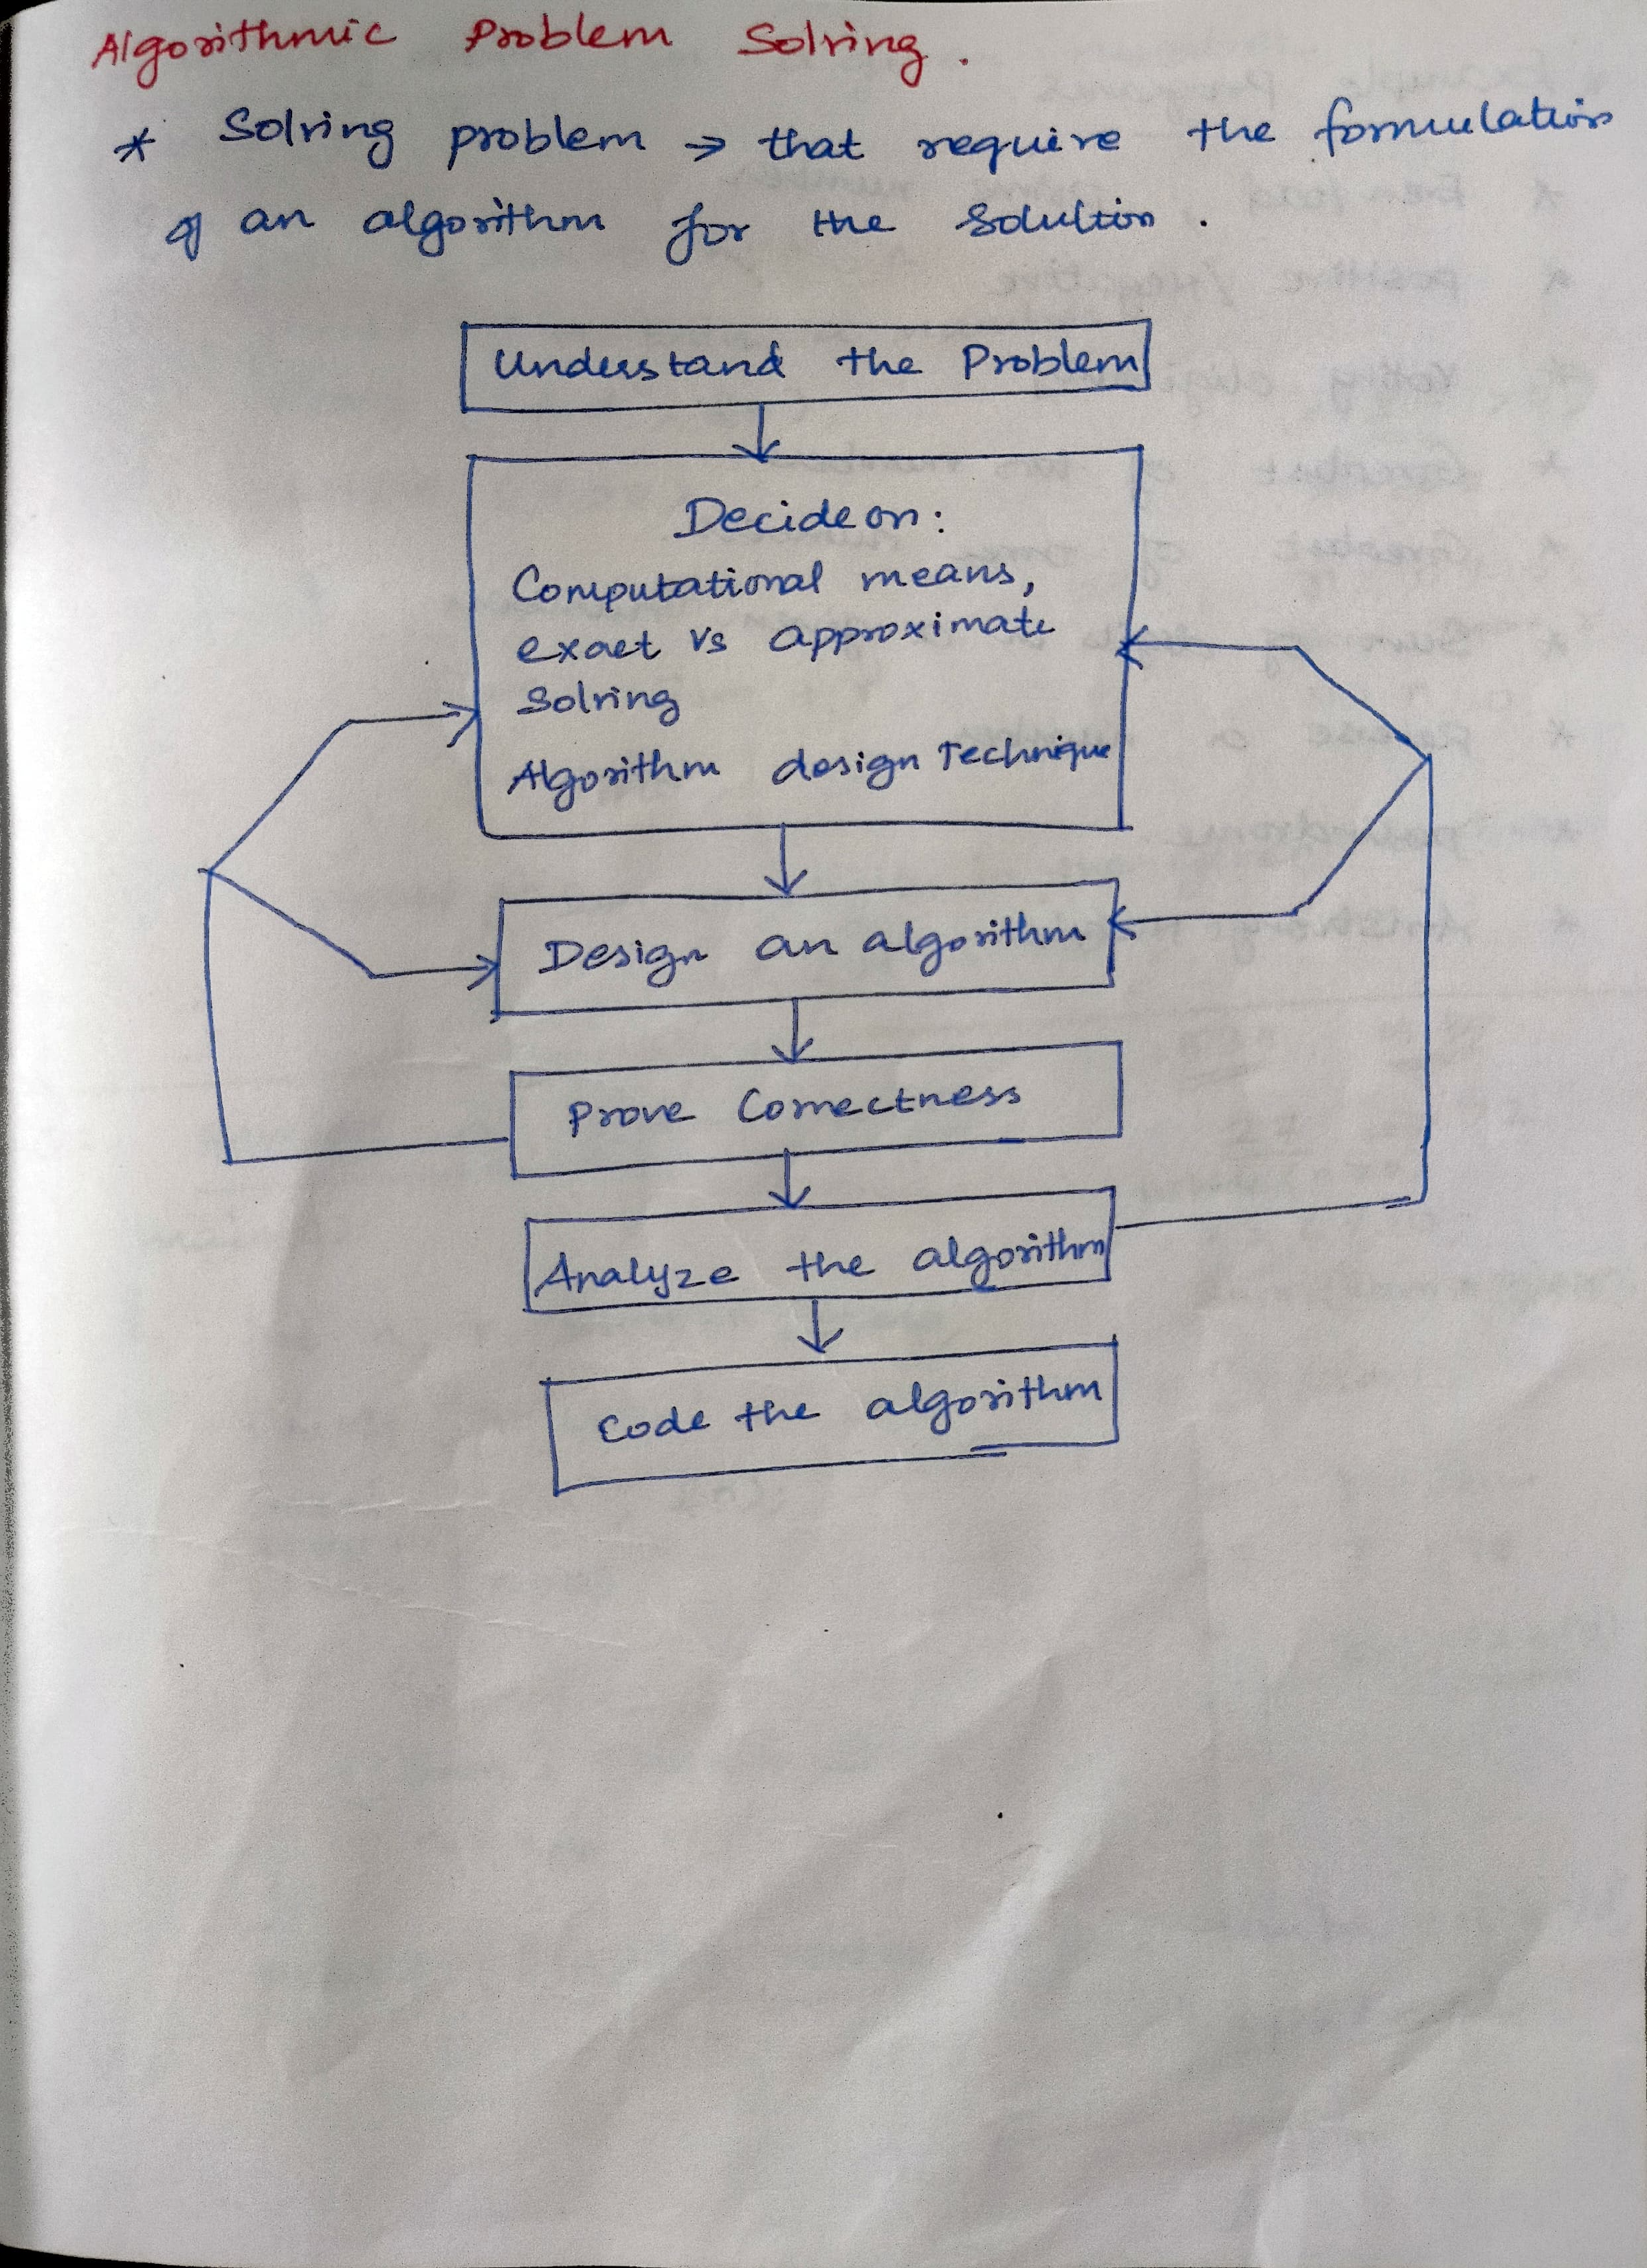 Algorithmic Problem Solving.
* Solving problem → that require the formulation
of an algorithm for the solution.
Understand the Problem
Decide on:
Computational means,
exact vs approximate
Solving
Algorithm design Technique
Design an algorithm
Prove Correctness
Analyze the algorithm
Code the algorithm